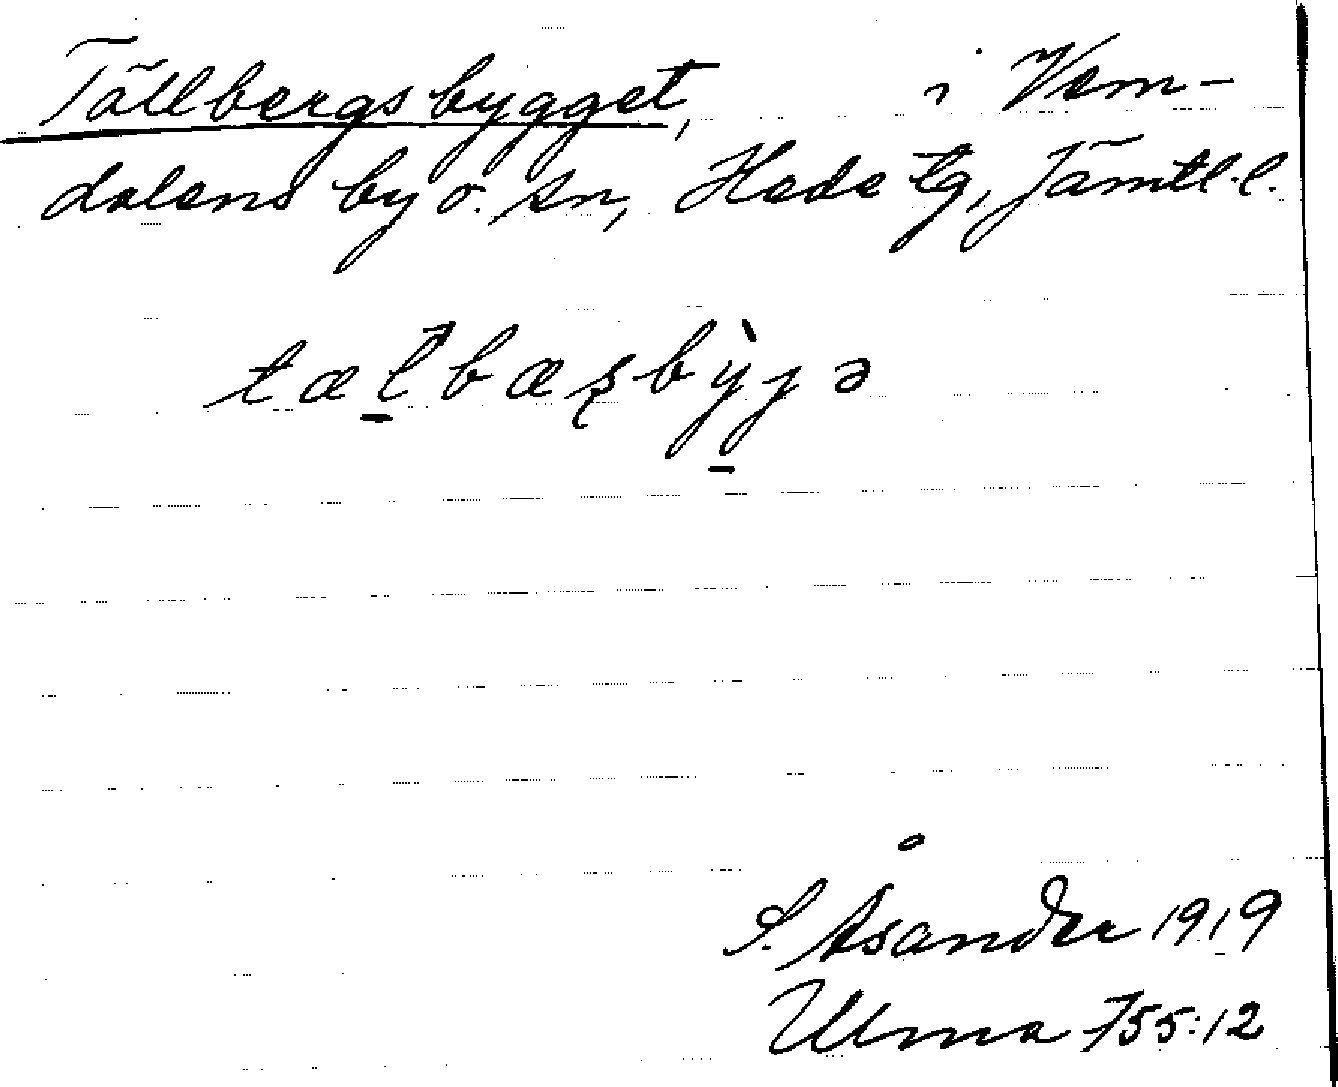 Tällbergsbygget, i Vem-
dalens by o. sn, Hede tg, Jämtl. l.
tæl̠bæʂbỳ̠ɟə
S. Åsander 1919
Ulma 755:12